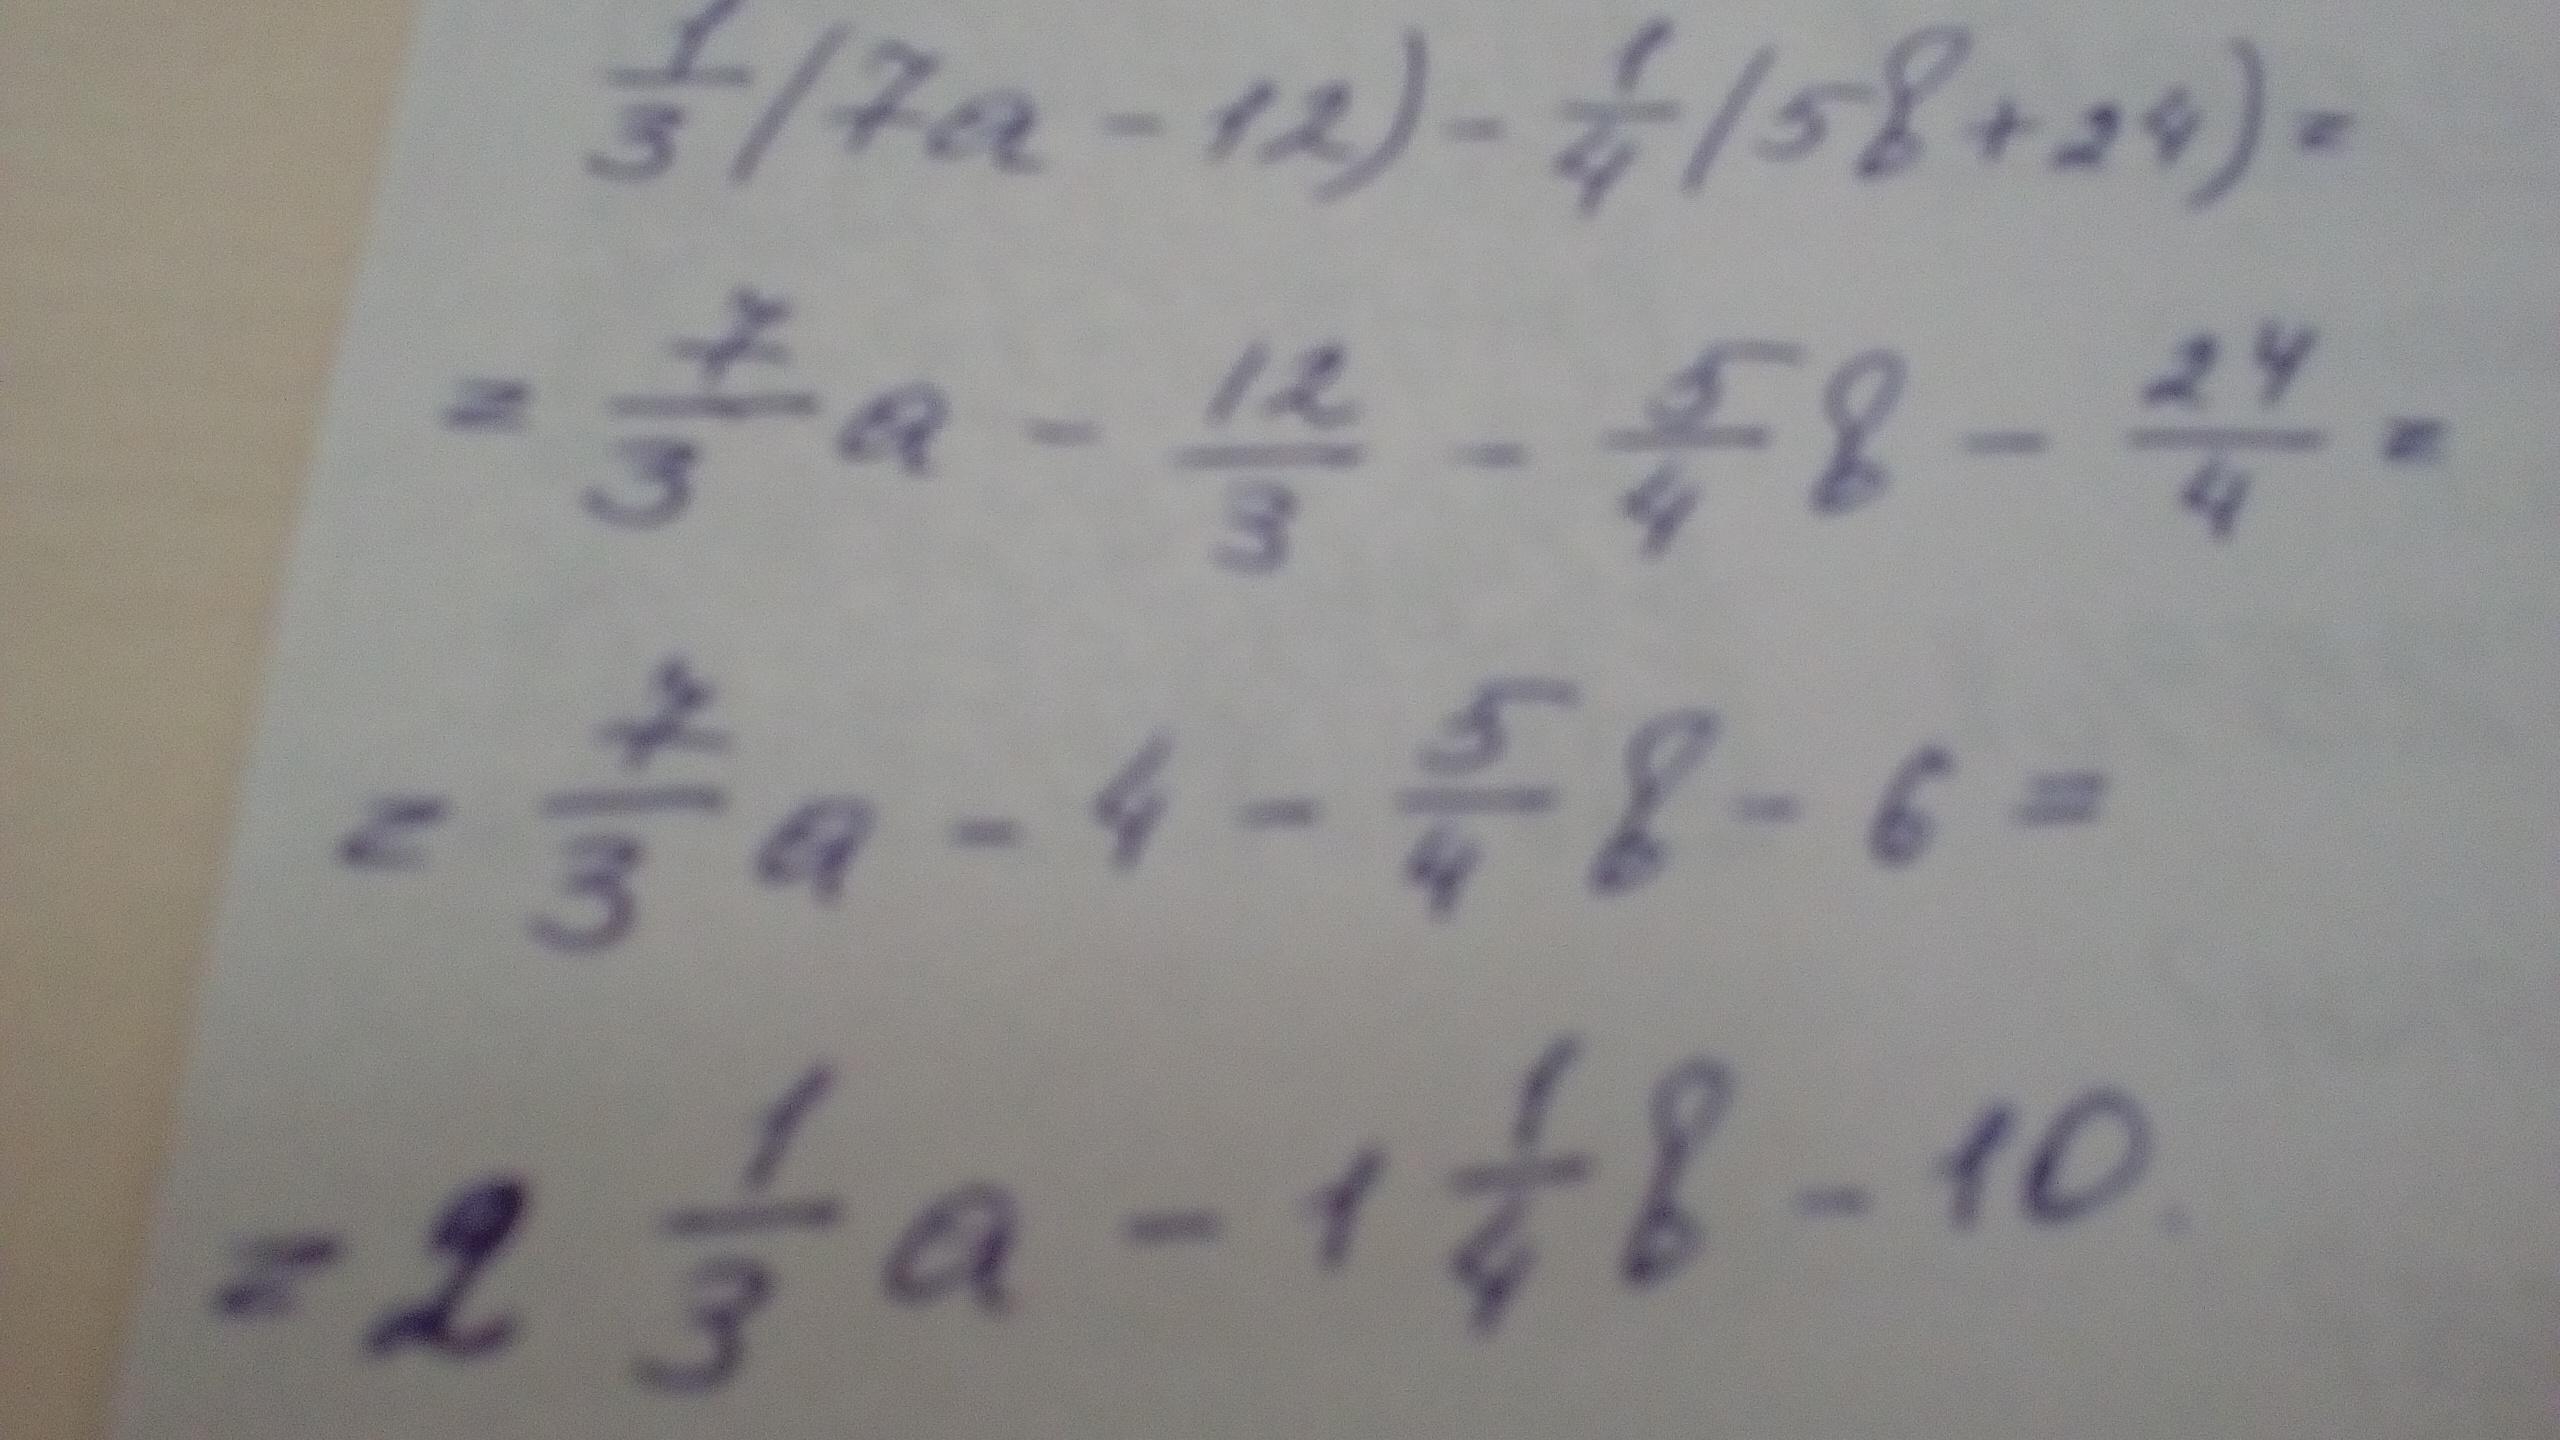 1/3 (7a - 12) - 1/4 (5b + 24) =
= 7/3 a - 12/3 - 5/4 b - 24/4 =
= 7/3 a - 4 - 5/4 b - 6 =
= 2 1/3 a - 1 1/4 b - 10.